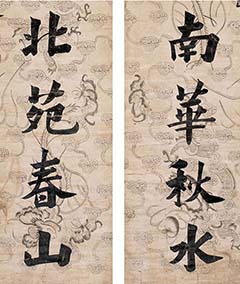 南華秋水
北苑春山